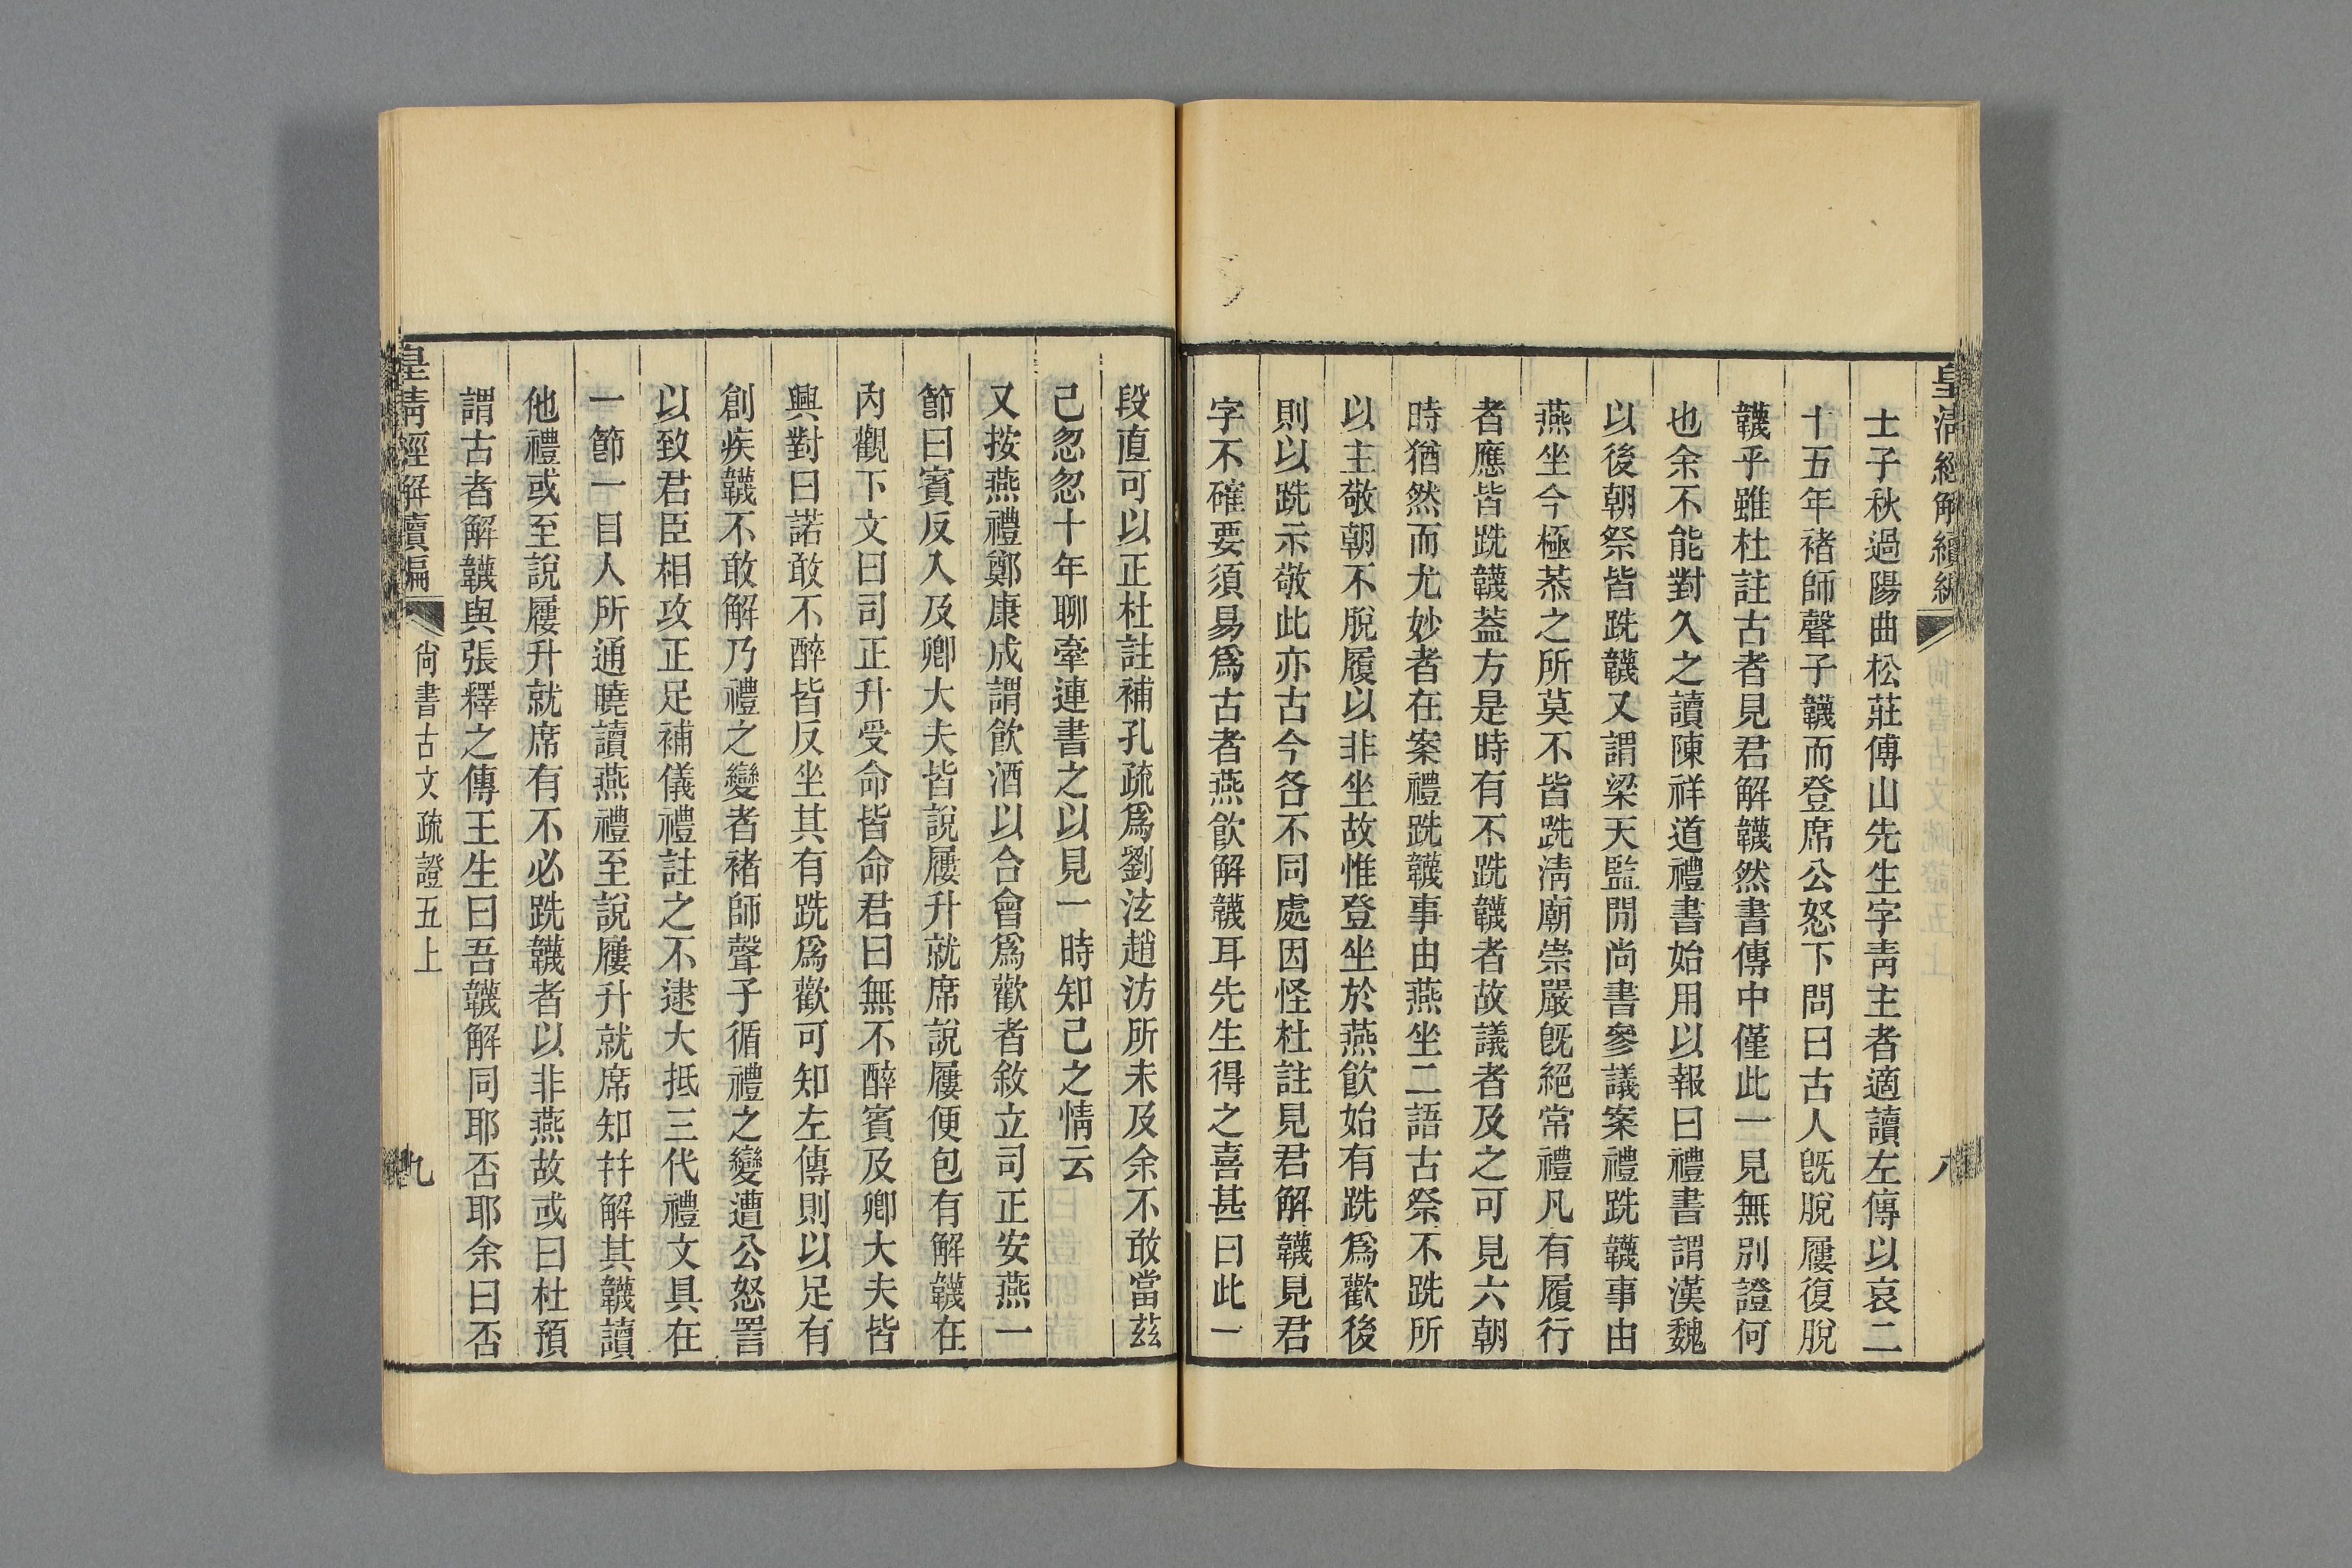 皇清經解續編
八
士子秋過陽曲松莊傅山先生字靑主者適讀左傳以哀二
十五年褚師聲子韤而登席公怒下問曰古人旣脫屨復脫
韤乎雖杜註古者見君解韤然書傳中僅此一見無別證何
也余不能對久之讀陳祥道禮書始用以報曰禮書謂漢魏
以後朝祭皆跣韤又謂梁天監閒尙書參議案禮跣韤事由
燕坐今極㳟之所莫不皆跣淸廟崇嚴旣絕常禮凡有履行
者應皆跣韤蓋方是時有不跣韤者故議者及之可見六朝
時猶然而尤妙者在案禮跣韤事由燕坐二語古祭不跣所
以主敬朝不脫履以非坐故惟登坐於燕飮始有跣爲歡後
則以跣示敬此亦古今各不同處因怪杜註見君解韤見君
字不確要須易爲古者燕飮解韤耳先生得之喜甚曰此一
段直可以正杜註補孔疏爲劉泫趙汸所未及余不敢當茲
已忽忽十年聊牽連書之以見一時知己之情云
又按燕禮鄭康成謂飮酒以合會爲歡者敘立司正安燕一
節曰賓反入及卿大夫皆說屨升就席說屨便包有解韤在
內觀下文曰司正升受命皆命君曰無不醉賓及卿大夫皆
興對曰諾敢不醉皆反坐其有跣爲歡可知左傳則以足有
創疾韤不敢解乃禮之變者褚師聲子循禮之變遭公怒詈
以致君臣相攻正足補儀禮註之不逮大抵三代禮文具在
一節一目人所通曉讀燕禮至說屨升就席知幷解其韤讀
他禮或至說屨升就席有不必跣韤者以非燕故或曰杜預
謂古者解韤與張釋之傳王生曰吾韤解同耶否耶余曰否
皇淸經解續編
尙書古文疏證五上
九